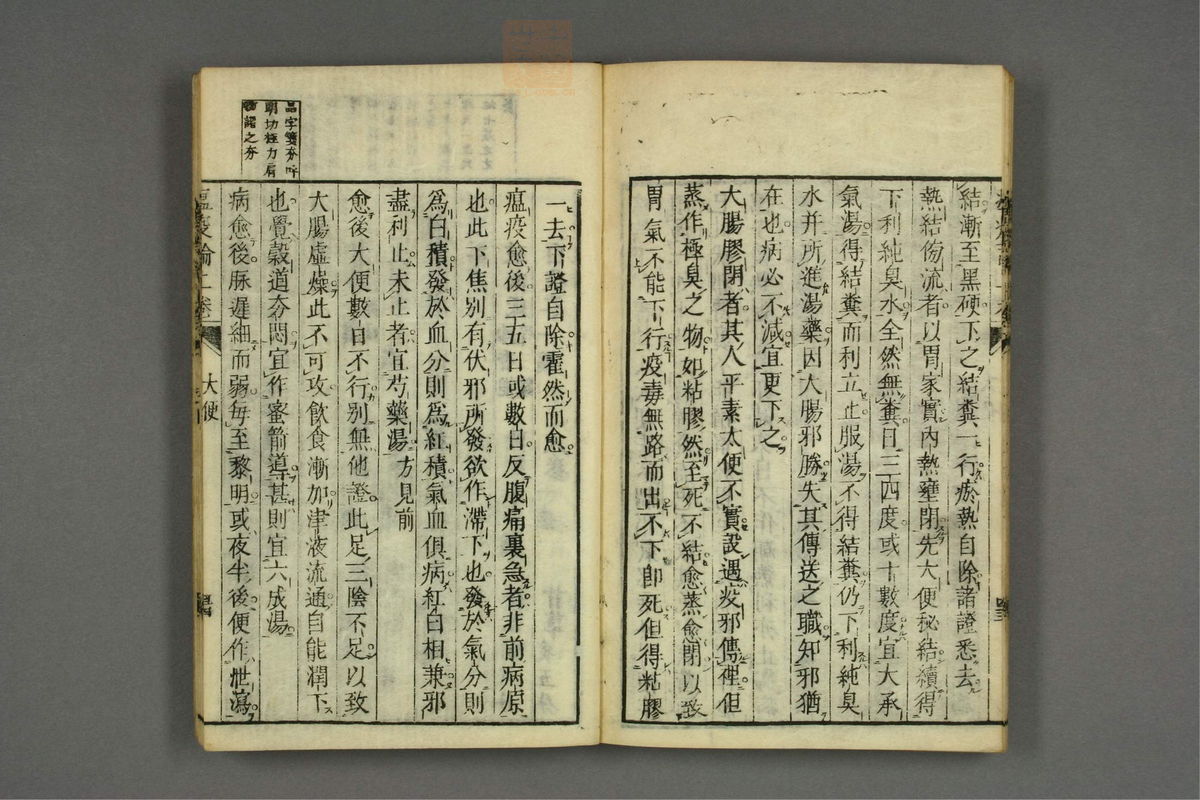 結漸至黑硬下之結糞一行瘀熱自除諸證悉去
熱結傍流者以胃家實內熱壅閉先大便秘結續得
下利純臭水全然無糞日三四度或十數度宜大承
氣湯得結糞而利立止服湯不得結糞仍下利純臭
水幷所進湯藥因大腸邪勝失其傳送之職知邪猶
在也病必不減宜更下之
大腸膠閉者其人平素大便不實設遇疫邪傳裡但
蒸作極臭之物如粘膠然至死不結愈蒸愈閉以致
胃氣不能下行疫毒無路而出不下卽死但得粘膠
一去下證自除霍然而愈
瘟疫愈後三五日或數日反腹痛裏急者非前病原
也此下焦別有伏邪所發欲作滯下也發於氣分則
爲白積發於血分則爲紅積氣血俱病紅白相兼邪
盡利止未止者宜芍藥湯方見前
愈後大便數日不行別無他證此足三陰不足以致
大腸虛燥此不可攻飲食漸加津液流通自能潤下
也覺穀道夯悶宜作蜜箭導甚則宜六成湯
病愈後脉遲細而弱每至黎明或夜半後便作泄瀉
品字箋夯呼
朗切極力肩
物謂之夯
瘟疫論上卷 大便